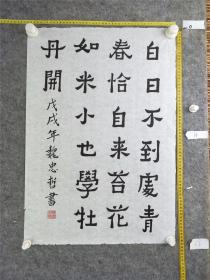 白日不到處青
春恰自来苔花
如米小也學牡
丹開
戊戌年魏忠哲書